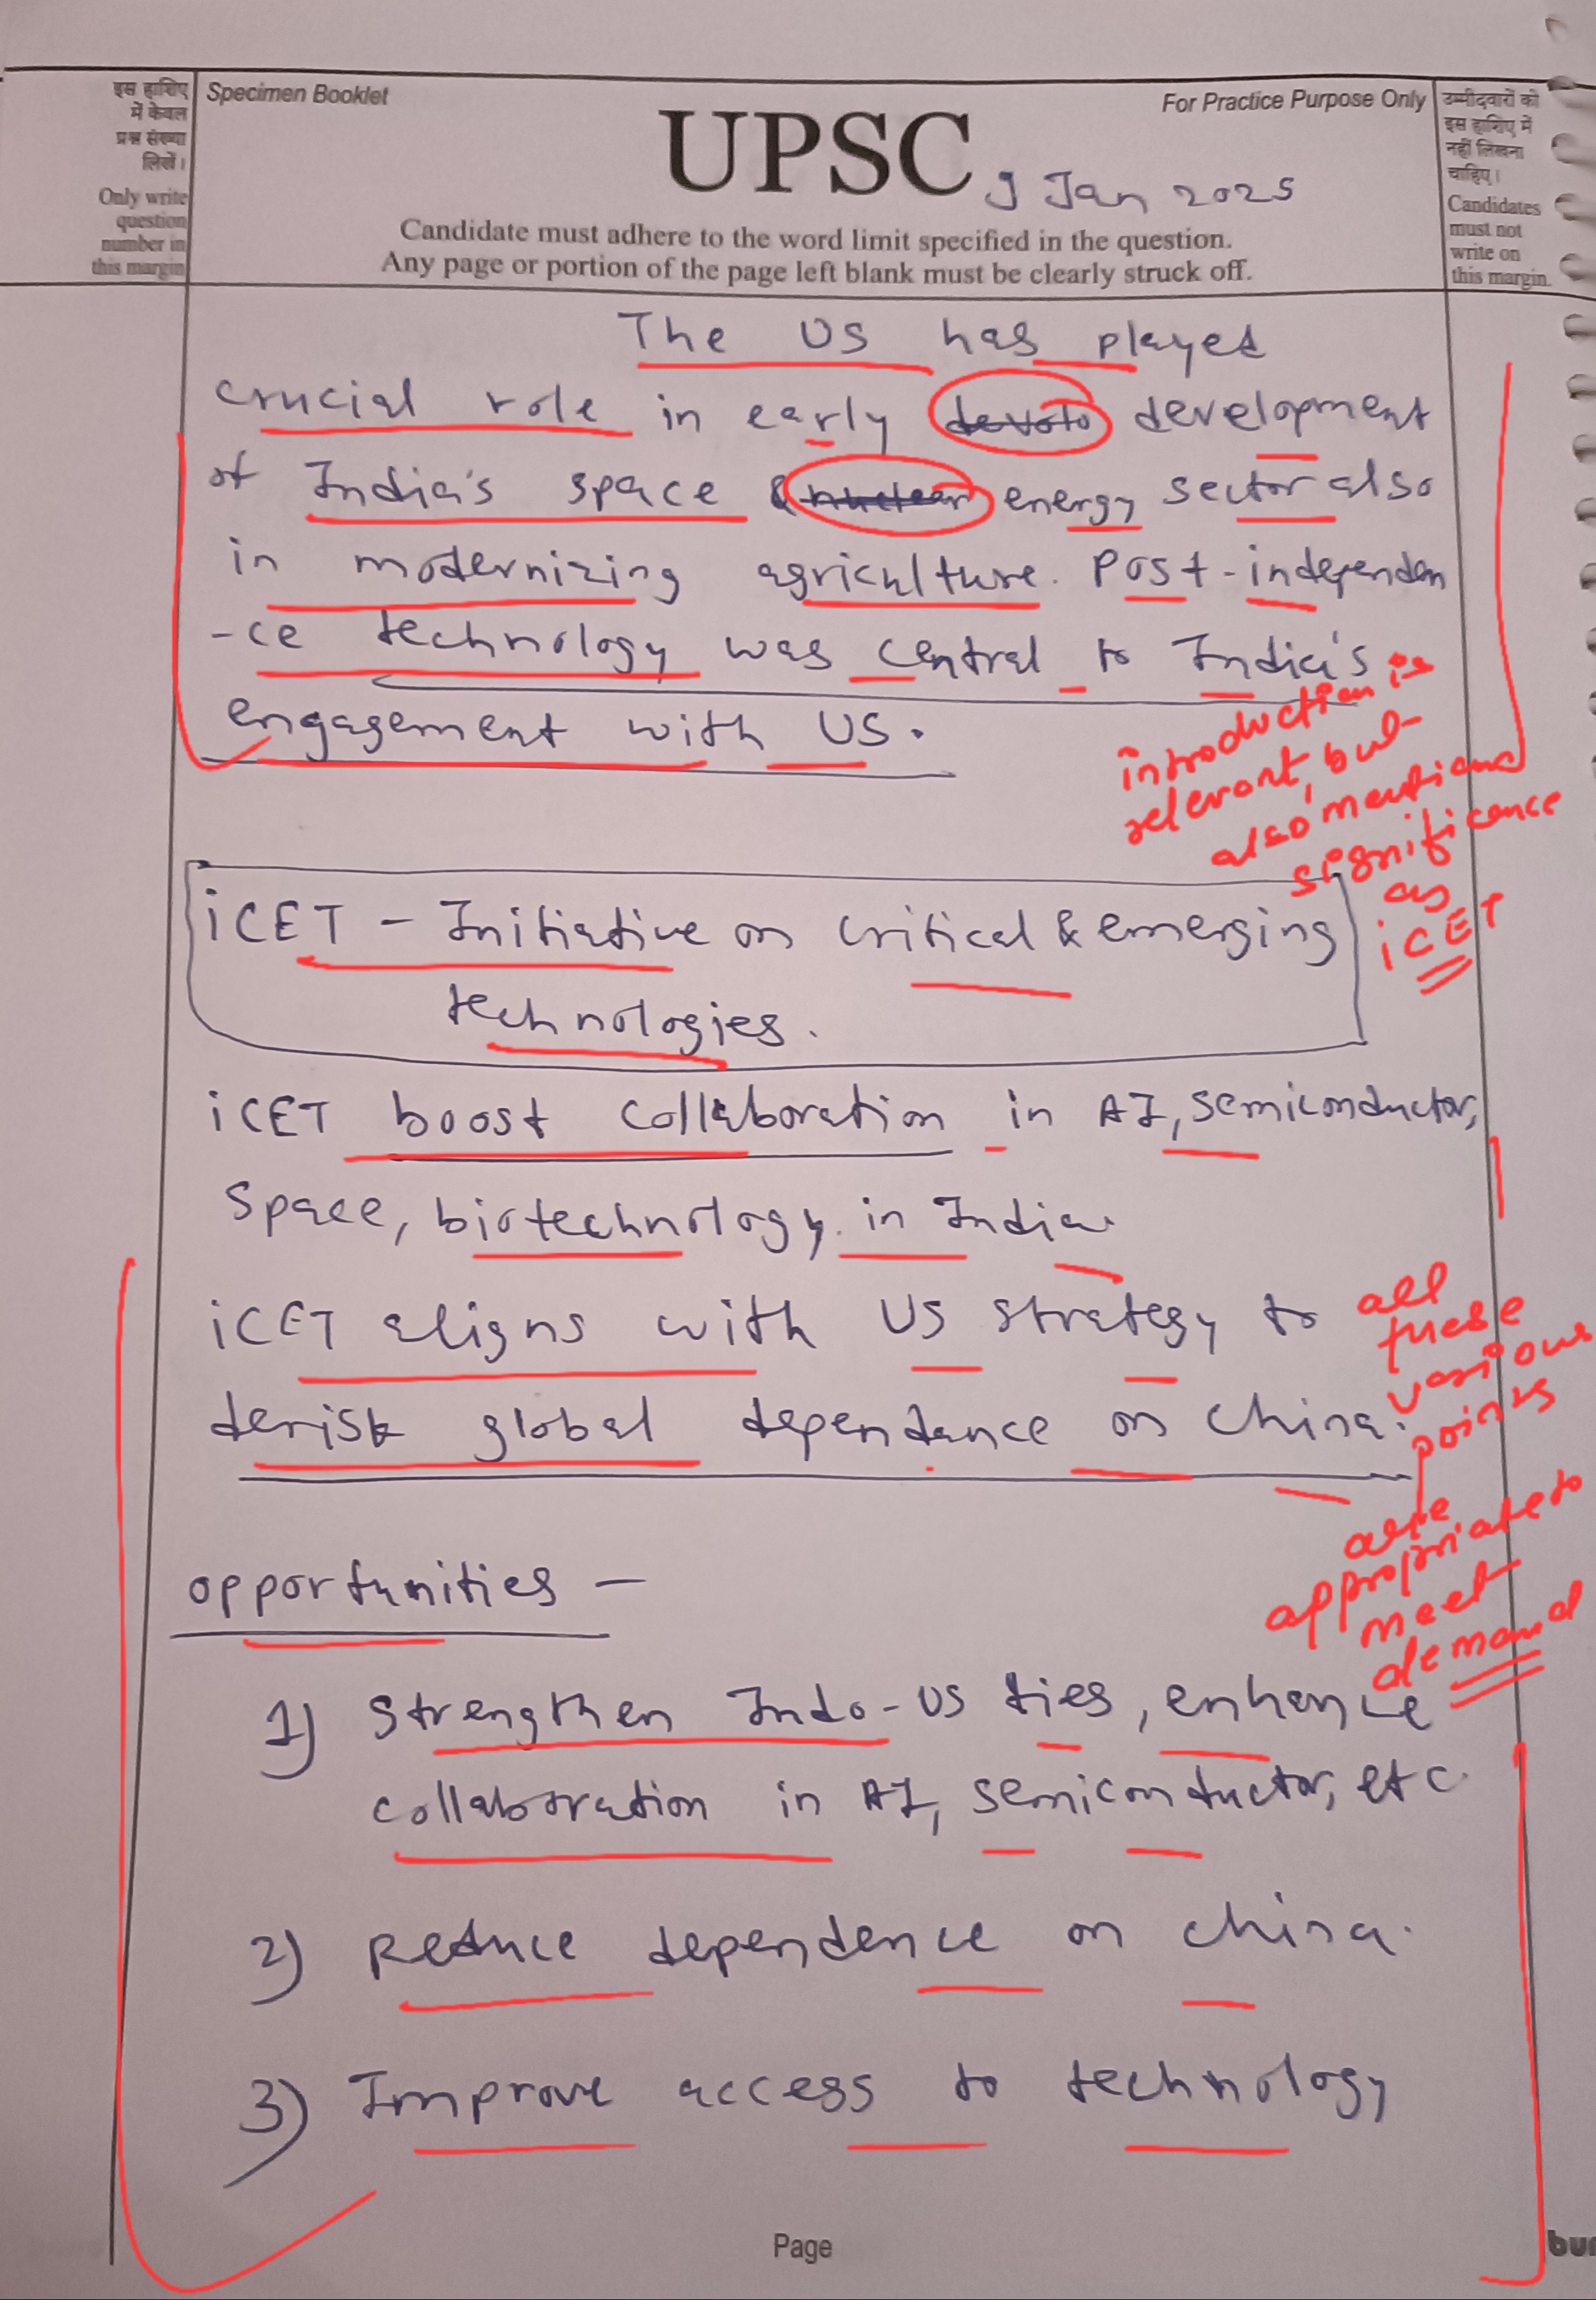 इस हाशिए
में केवल
प्रश्न संख्या
लिखें।
Only write
question
number in
this margin
Specimen Booklet
For Practice Purpose Only
UPSC
9 Jan 2025
Candidate must adhere to the word limit specified in the question.
Any page or portion of the page left blank must be clearly struck off.
उम्मीदवारों को
इस हाशिए में
नहीं लिखना
चाहिए।
Candidates
must not
write on
this margin.
The US has played
crucial role in early development
of India's space & nuclear energy sector also
in modernizing agriculture. Post-independen
-ce technology was central to India's
engagement with US.
introduction is
relevant, but
also mentiond
significance
as
iCET
iCET - Initiative on critical & emerging
technologies.
iCET boost collaboration in AI, semiconductor,
space, biotechnology in India.
iCET aligns with US strategy to
derisk global dependance on china.
all
these
various
points
are
appropriate to
meet
demand
opportunities -
1) strengthen Indo-US ties, enhance
collaboration in AI, semiconductor, etc.
2) Reduce dependence on china.
3) Improve access to technology
Page